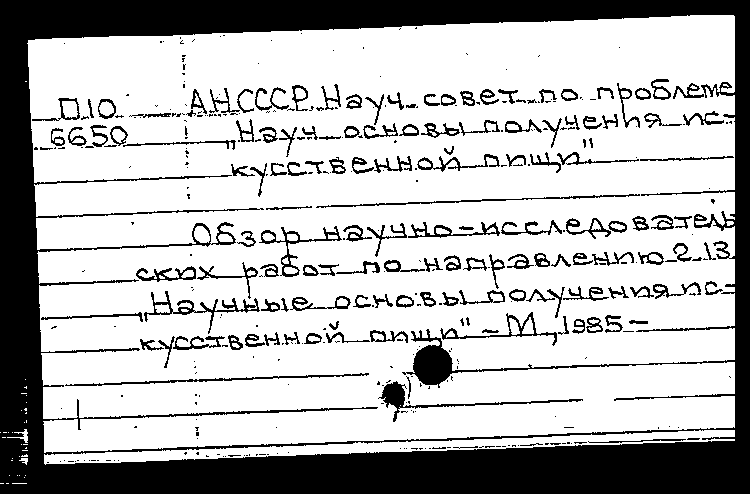 П10 АНСССР. Науч. совет по проблеме
6650 „Науч. основы получения ис-
кусственной пищи".
Обзор научно-исследователь
ских работ по направлению 2.13
„Научные основы получения ис-
кусственной пищи" – М., 1985 –